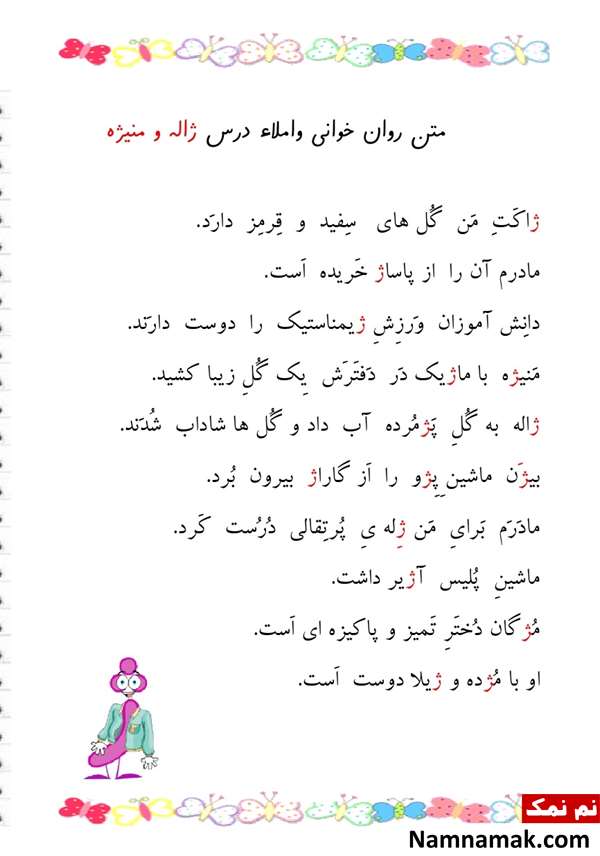 متن روان خوانی واملاء درس ژاله و منیژه
ژاکَتِ مَن گُل های سِفید و قِرمِز دارَد.
مادرم آن را از پاساژ خَریده اَست.
دانِش آموزان وَرزِشِ ژیمناستیک را دوست دارَند.
مَنیژه با ماژیک دَر دَفتَرَش یِک گُلِ زیبا کشید.
ژاله به گُلِ پَژمُرده آب داد و گُل ها شاداب شُدَند.
بیژَن ماشینِ پِژو را اَز گاراژ بیرون بُرد.
مادَرَم بَرایِ مَن ژِله یِ پُرتِقالی دُرُست کَرد.
ماشینِ پُلیس آژیر داشت.
مُژگان دُختَرِ تَمیز و پاکیزه ای اَست.
او با مُژده و ژیلا دوست اَست.
نم نمک
Namnamak.com